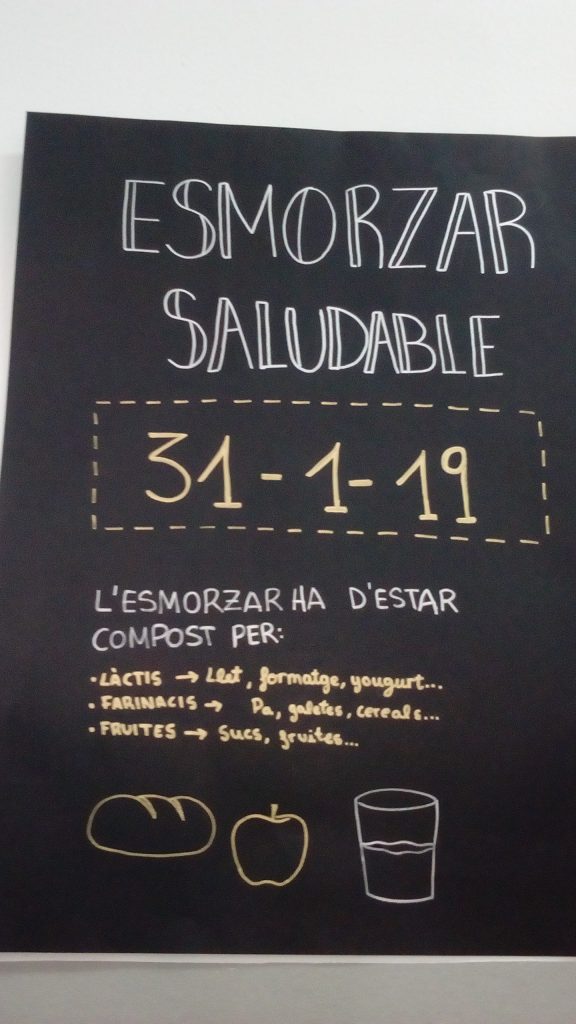 ESMORZAR
SALUDABLE
31-1-19
L'ESMORZAR HA D'ESTAR
COMPOST PER:
• LÀCTIS → Llet, formatge, yougurt...
• FARINACIS → Pa, galetes, cereals...
• FRUITES → Sucs, fruites...